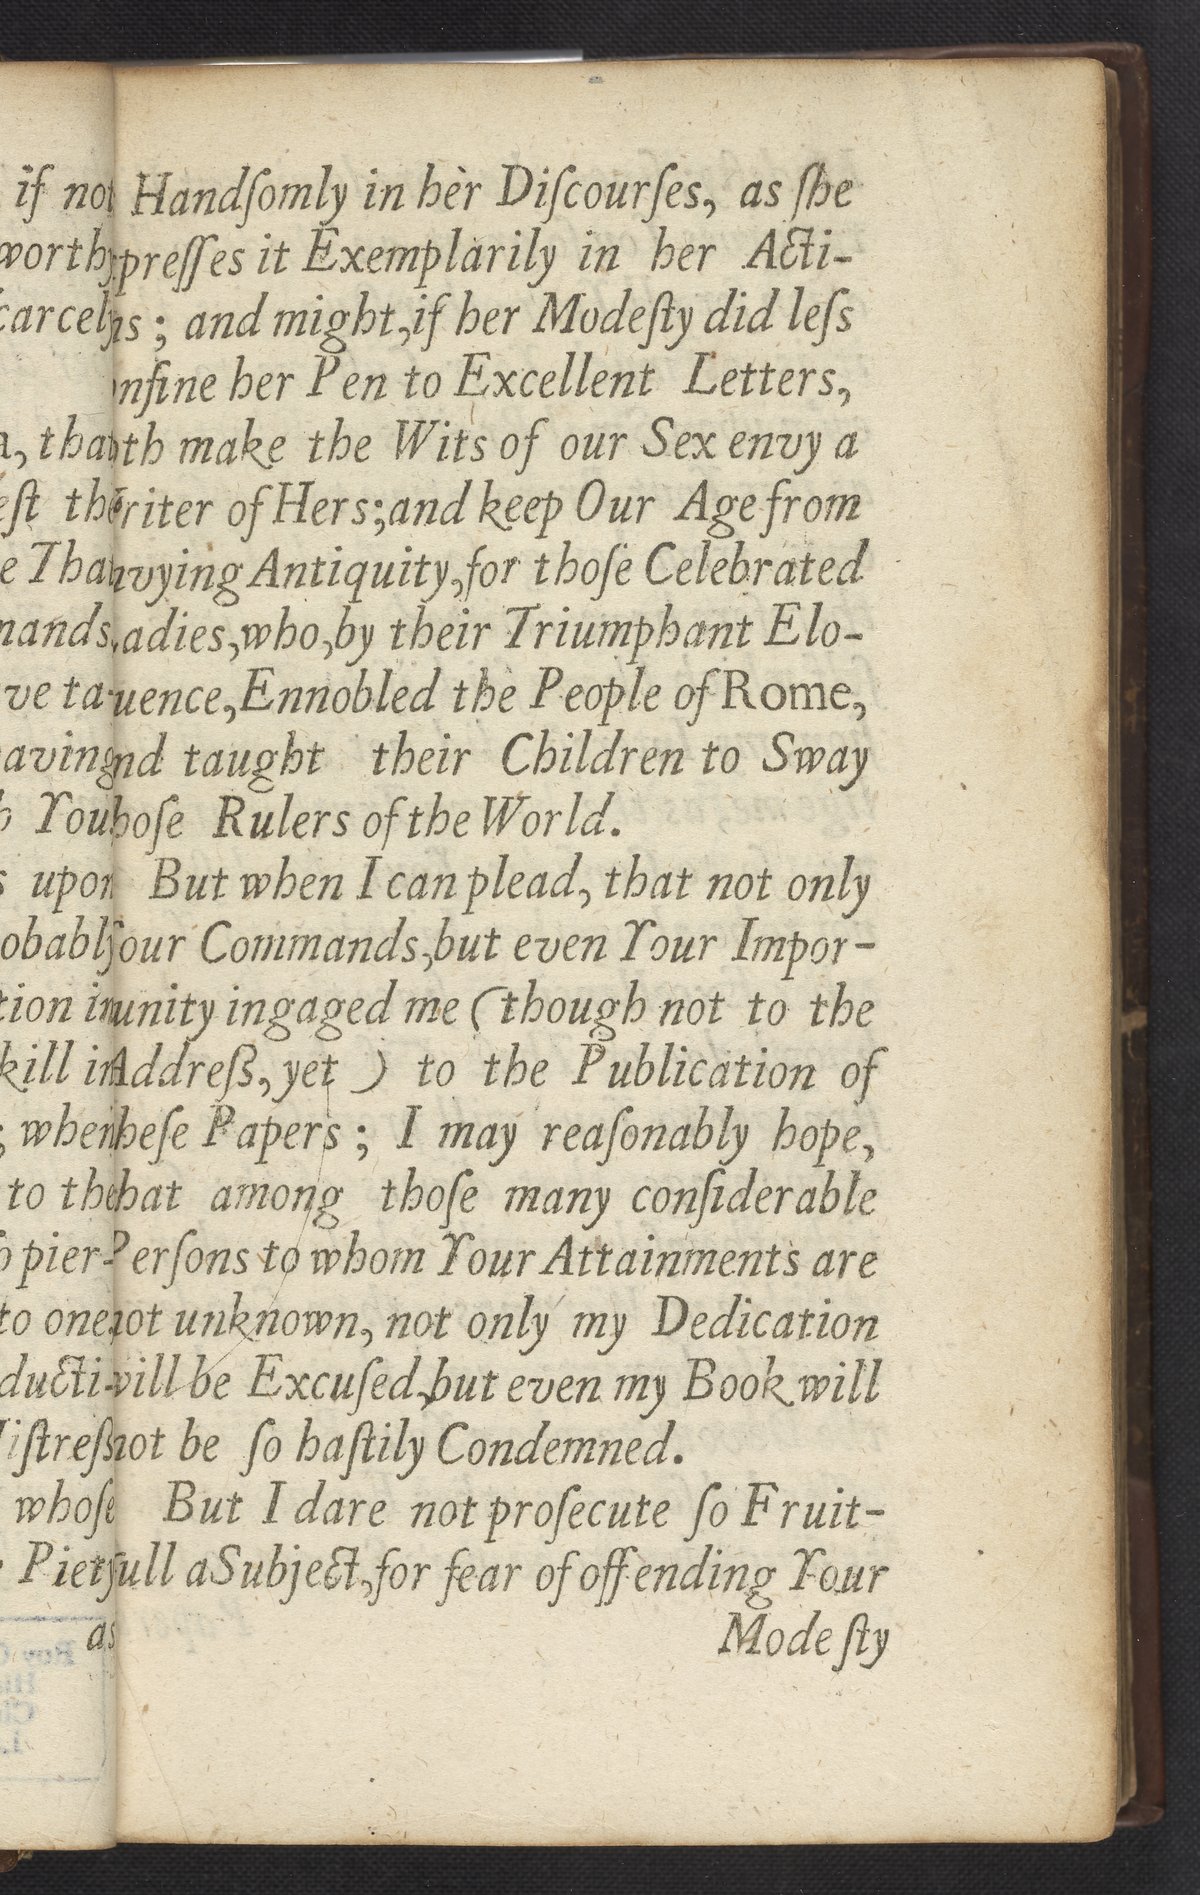 if not
worthy
carcely
, tha
eſt the
e That
mands,
ve ta-
aving
You
upon
obably
tion in
kill in
; when
to the
pier-
to one
ducti-
iſtreſs
whoſe
Piety
as
Handſomly in her Diſcourſes, as ſhe
preſſes it Exemplarily in her Acti-
ns ; and might, if her Modeſty did leſs
onfine her Pen to Excellent Letters,
oth make the Wits of our Sex envy a
riter of Hers; and keep Our Age from
nvying Antiquity, for thoſe Celebrated
adies, who, by their Triumphant Elo-
uence, Ennobled the People of Rome,
nd taught their Children to Sway
hoſe Rulers of the World.
But when I can plead, that not only
our Commands, but even Your Impor-
unity ingaged me (though not to the
Addreſs, yet ) to the Publication of
heſe Papers ; I may reaſonably hope,
hat among thoſe many conſiderable
Perſons to whom Your Attainments are
not unknown, not only my Dedication
will be Excuſed, but even my Book will
not be ſo haſtily Condemned.
But I dare not proſecute ſo Fruit-
full a Subject, for fear of offending Your
Modeſty